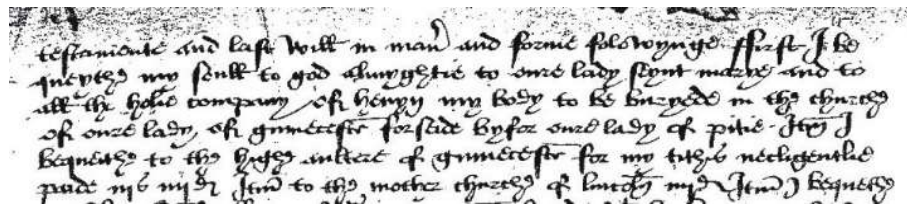 testamente and last will in maner and forme folowynge ffirst I be
queythe my soull to god almyghtie to oure lady seynt marye and to
all the holie company of hevyn my body to be buryede in the churche
of oure lady of gumecestr forseide byfor oure lady of pitie Itm I
bequethe to the highe aultere of gumecestr for my tithis necligentlie
paide iijs iiijd Itm to the mother churche of lincoln iiijd Itm I bequethe